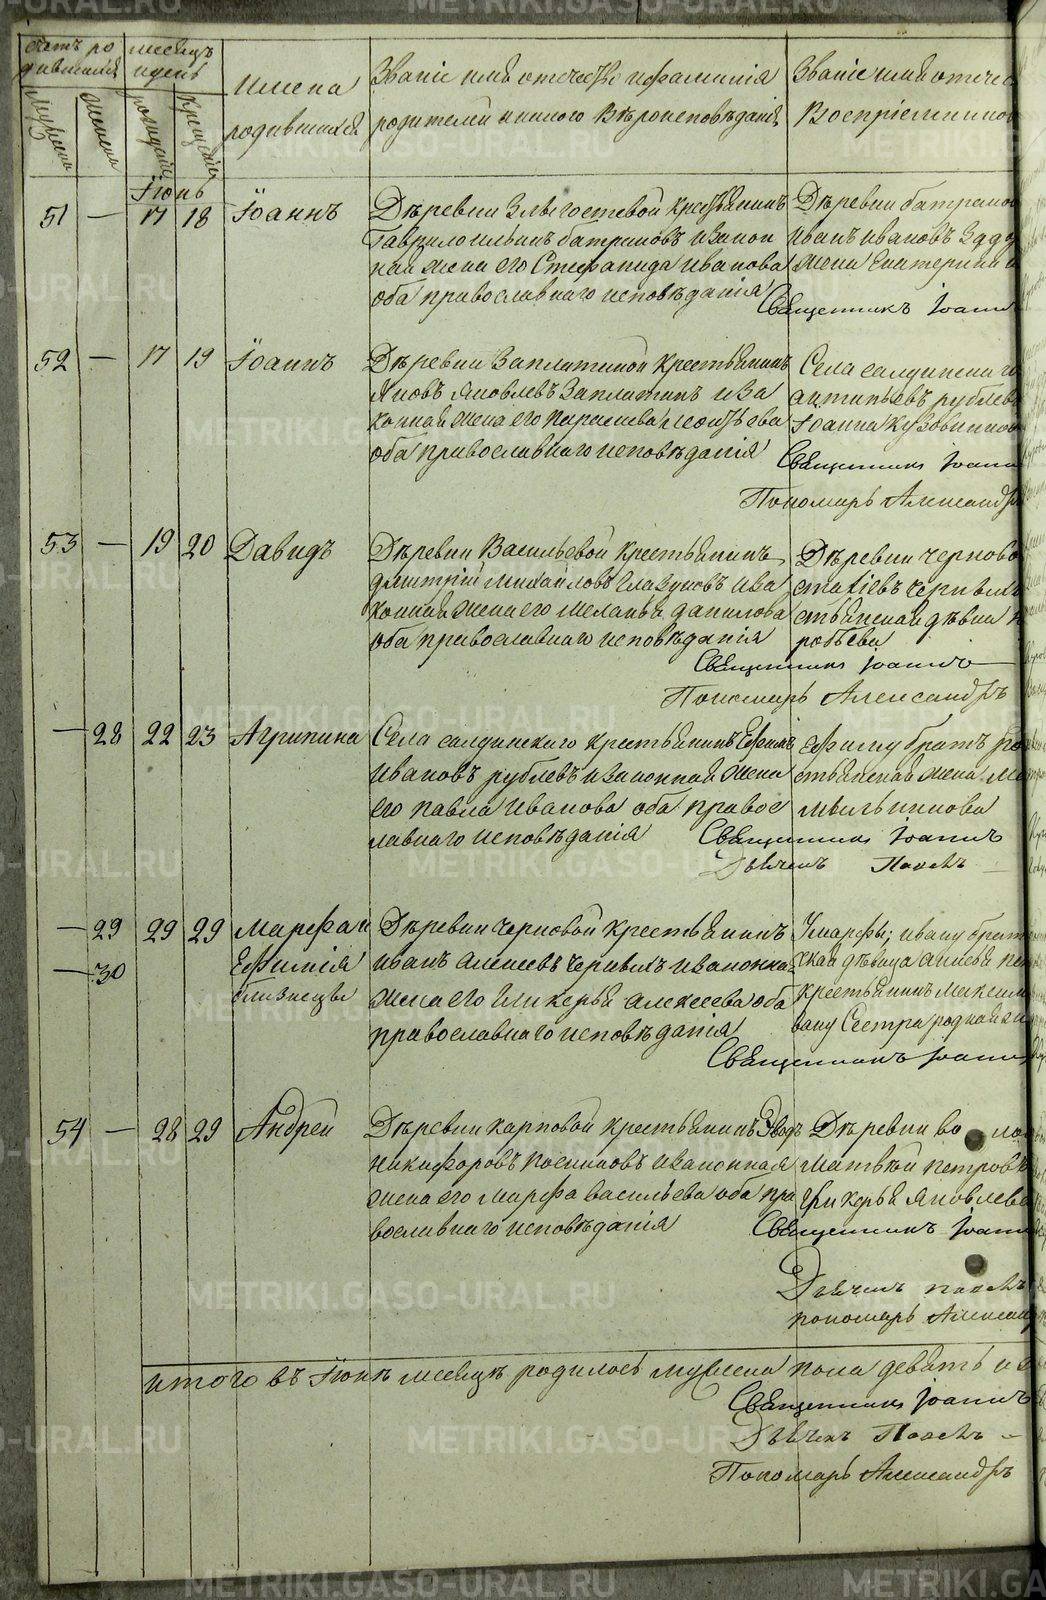 счетъ ро
дившихся
мѣсяцъ
и день
Мужеска
Женска
рожденія
крещенія
Имена
родившихся
Званіе имя отечество и фамилія
родителей и какого вѣроисповѣданія
Званіе имя отечес
Воспріемников
Іюнь
51 — 17 18 Іоаннъ
Деревни Злыгостевой крестьянинъ
Гаврило Ильинъ батраковъ и закон
ная жена его Стефанида Иванова
оба православнаго исповѣданія
Деревни батрако
Иванъ Ивановъ
жена Екатерина
Священникъ Іоанн
52 — 17 19 Іоаннъ
Деревни Заплатиной крестьянинъ
Яковъ Яковлевъ Заплатинъ и за
конная жена его Параскева Леонтьева
оба православнаго исповѣданія
Села салдинска
антипьевъ рублев
Іоанна Кузовников
Священникъ Іоанн
Пономарь Александръ
53 — 19 20 Давидъ
Деревни Васильевой крестьянинъ
дмитрій михайловъ Глазуновъ и за
конная жена его Меланья данилова
оба православнаго исповѣданія
Деревни черново
крестьянская дѣвица
робьева
Священникъ Іоаннъ
Пономарь Александръ
— 28 22 23 Агрипина
Села салдинскаго крестьянинъ Ефимъ
Ивановъ рублевъ и законная жена
его павла Иванова оба правос
лавнаго исповѣданія
Ефиму братъ ро
стьянская жена
мыльникова
Священникъ Іоаннъ
Дьячекъ Павелъ
— 29 29 29 Марфа и
— 30 Ефимія
близнецы
Деревни Черновой крестьянинъ
иванъ алексеевъ и законная
жена его Гликерья алексеева оба
православнаго исповѣданія
У марфы; ивану брат
ская дѣвица
крестьянинъ Максим
вану Сестра родная
Священникъ Іоанн
54 — 28 29 Андрей
Деревни карповой крестьянинъ
никифоровъ и законная
жена его Марфа васильева оба пра
вославнаго исповѣданія
Деревни во
Матвѣй петровъ
Гликерья Яковлева
Священникъ Іоанн
Дьячекъ павелъ
пономарь Александ
итого въ Іюнѣ месяцѣ родилось мужеска пола девять и
Священникъ Іоаннъ
Дьячекъ Павелъ
Пономарь Александръ
METRIKI.GASO-URAL.RU